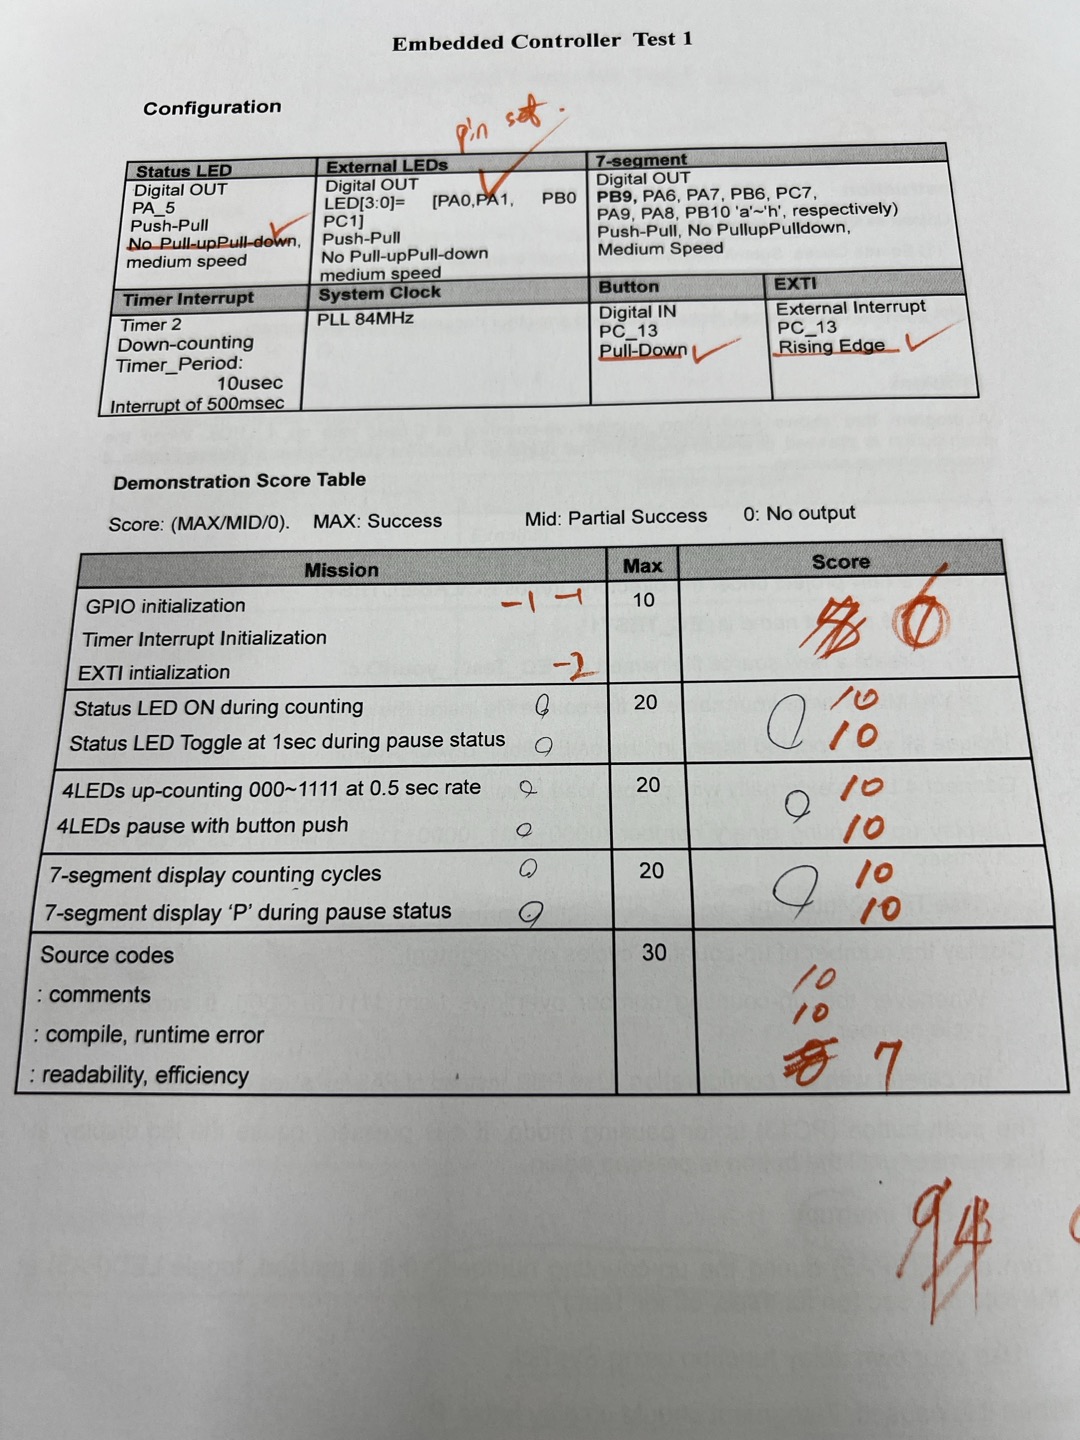 Embedded Controller Test 1
Configuration
pin set.
Status LED
Digital OUT
PA_5
Push-Pull
No Pull-upPull-down,
medium speed
External LEDs
Digital OUT
LED[3:0]= [PA0,PA1, PB0
PC1]
Push-Pull
No Pull-upPull-down
medium speed
7-segment
Digital OUT
PB9, PA6, PA7, PB6, PC7,
PA9, PA8, PB10 'a'~'h', respectively)
Push-Pull, No PullupPulldown,
Medium Speed
Timer Interrupt
Timer 2
Down-counting
Timer_Period:
10usec
Interrupt of 500msec
System Clock
PLL 84MHz
Button
Digital IN
PC_13
Pull-Down
EXTI
External Interrupt
PC_13
Rising Edge
Demonstration Score Table
Score: (MAX/MID/0). MAX: Success Mid: Partial Success 0: No output
Mission Max Score
GPIO initialization -1 -1 10 6
Timer Interrupt Initialization
EXTI intialization -2
Status LED ON during counting 20 10
Status LED Toggle at 1sec during pause status 10
4LEDs up-counting 000~1111 at 0.5 sec rate 20 10
4LEDs pause with button push 10
7-segment display counting cycles 20 10
7-segment display 'P' during pause status 10
Source codes 30
: comments 10
: compile, runtime error 10
: readability, efficiency 7